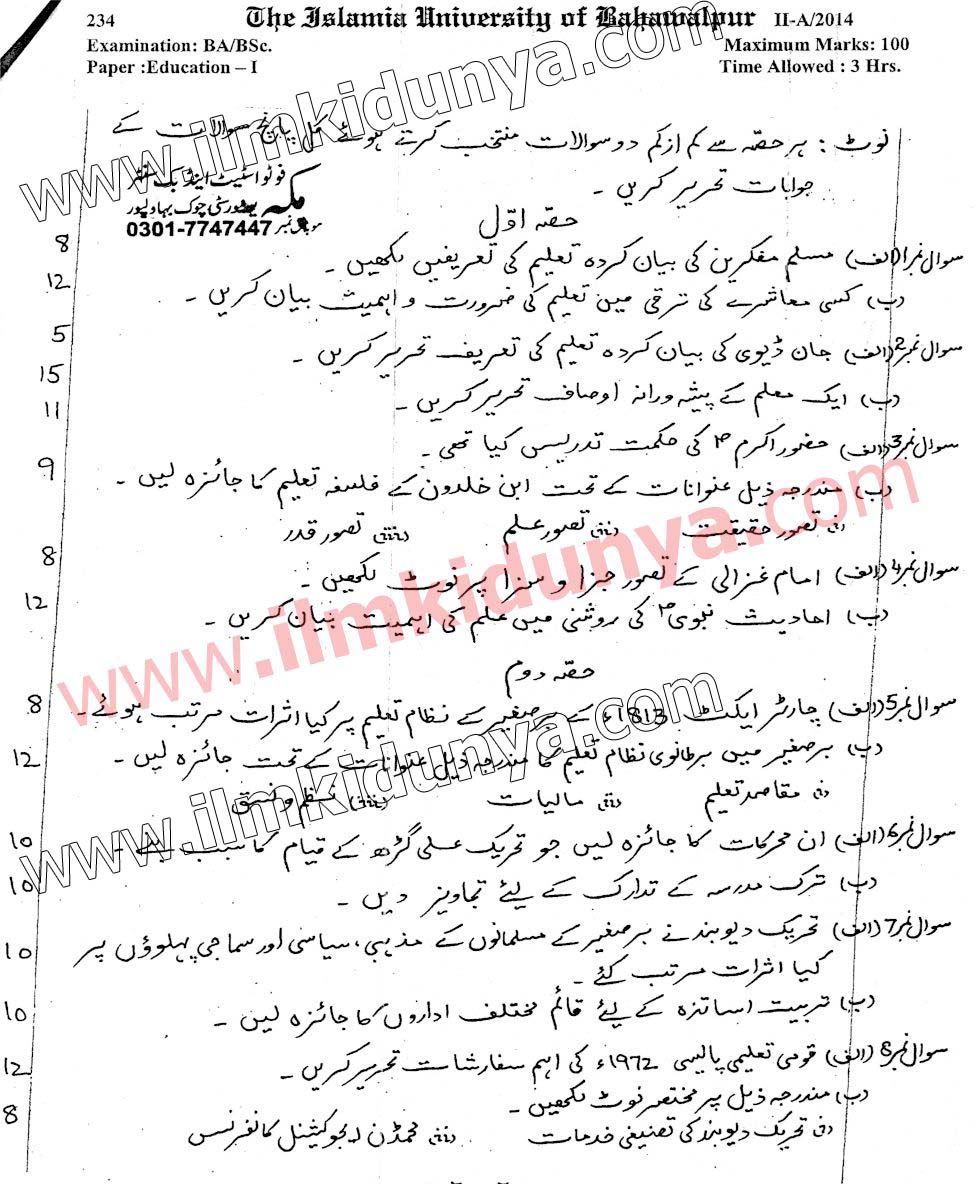 234 The Islamia University of Bahawalpur II-A/2014
Examination: BA/BSc. Maximum Marks: 100
Paper :Education – I Time Allowed : 3 Hrs.
نوٹ : ہر حصّہ سے کم از کم دو سوالات منتخب کرتے ہوئے کل پانچ سوالات کے
جوابات تحریر کریں ۔
فوٹو اسٹیٹ اینڈ بک سنٹر
مکہ یونیورسٹی چوک بہاولپور
موبائل نمبر 0301-7747447
حصّہ اوّل
سوال نمبر1 (الف) مسلم مفکرین کی بیان کردہ تعلیم کی تعریفیں لکھیں ۔ 8
(ب) کسی معاشرے کی ترقی میں تعلیم کی ضرورت و اہمیت بیان کریں ۔ 12
سوال نمبر2 (الف) جان ڈیوی کی بیان کردہ تعلیم کی تعریف تحریر کریں ۔ 5
(ب) ایک معلم کے پیشہ ورانہ اوصاف تحریر کریں ۔ 15
سوال نمبر3 (الف) حضور اکرم ؐ کی حکمت تدریس کیا تھی ۔ 11
(ب) مندرجہ ذیل عنوانات کے تحت ابن خلدون کے فلسفہ تعلیم کا جائزہ لیں ۔ 9
(i) تصور حقیقت (ii) تصور علم (iii) تصور قدر
سوال نمبر4 (الف) امام غزالی کے تصور جزا و سزا پر نوٹ لکھیں ۔ 8
(ب) احادیث نبوی ؐ کی روشنی میں علم کی اہمیت بیان کریں ۔ 12
حصّہ دوم
سوال نمبر5 (الف) چارٹر ایکٹ 1813ء کے برصغیر کے نظام تعلیم پر کیا اثرات مرتب ہوئے ۔ 8
(ب) برصغیر میں برطانوی نظام تعلیم کا مندرجہ ذیل عنوانات کے تحت جائزہ لیں ۔ 12
(i) مقاصد تعلیم (ii) مالیات (iii) نظم و نسق
سوال نمبر6 (الف) ان محرکات کا جائزہ لیں جو تحریک علی گڑھ کے قیام کا سبب بنے ۔ 10
(ب) ترک مدرسہ کے تدارک کے لیئے تجاویز دیں ۔ 10
سوال نمبر7 (الف) تحریک دیوبند نے برصغیر کے مسلمانوں کے مذہبی، سیاسی اور سماجی پہلوؤں پر 10
کیا اثرات مرتب کئے ۔
(ب) تربیت اساتذہ کے لیئے قائم مختلف اداروں کا جائزہ لیں ۔ 10
سوال نمبر8 (الف) قومی تعلیمی پالیسی 1972ء کی اہم سفارشات تحریر کریں ۔ 12
(ب) مندرجہ ذیل پر مختصر نوٹ لکھیں ۔ 8
(i) تحریک دیوبند کی تصنیفی خدمات (ii) محمڈن ایجوکیشنل کانفرنس
www.ilmkidunya.com
www.ilmkidunya.com
www.ilmkidunya.com